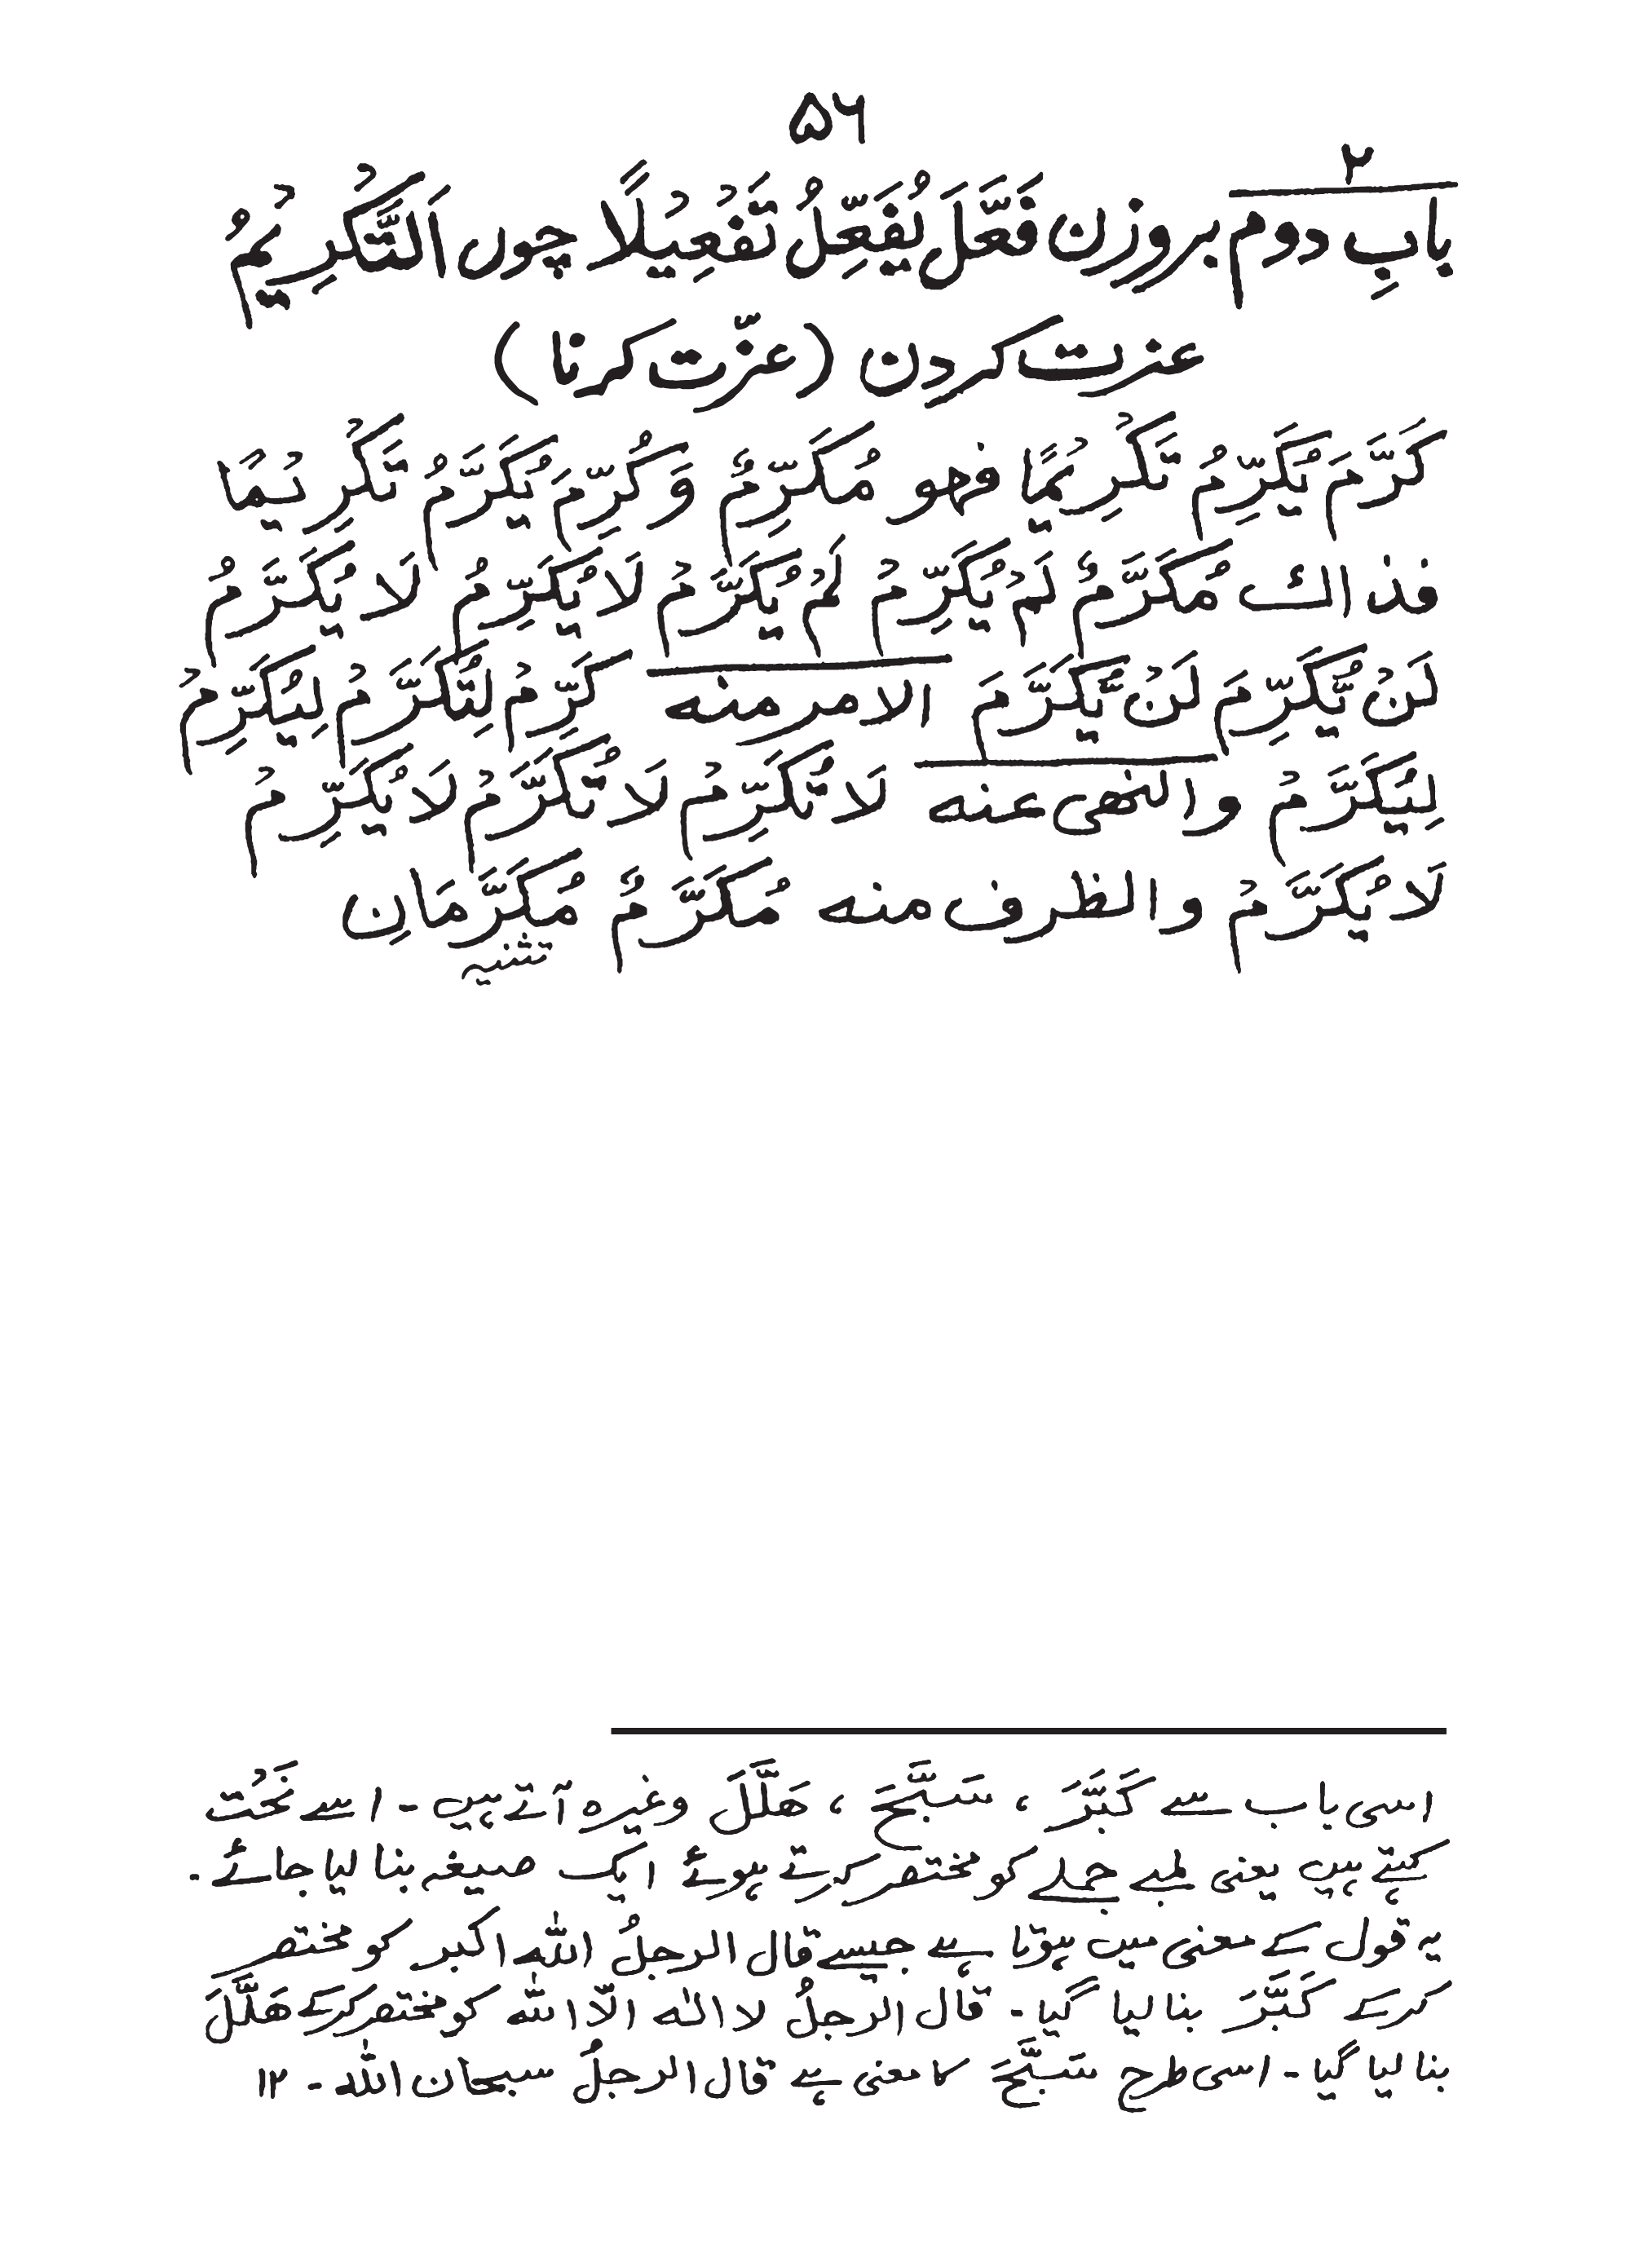 ۵۶
۲
بابِ دوم بروزن فَعَّلَ یُفَعِّلُ تَفْعِیْلًا چوں اَلتَّکْرِیْمُ
عزت کردن (عزّت کرنا)
کَرَّمَ یُکَرِّمُ تَکْرِیْمًا فهو مُکَرِّمٌ وَکُرِّمَ یُکَرَّمُ تَکْرِیْمًا
فذاك مُکَرَّمٌ لَمْ یُکَرِّمْ لَمْ یُکَرَّمْ لَا یُکَرِّمُ لَا یُکَرَّمُ
لَنْ یُّکَرِّمَ لَنْ یُّکَرَّمَ الامر منه کَرِّمْ لِتُکَرَّمْ لِیُکَرِّمْ
لِیُکَرَّمْ والنهی عنه لَا تُکَرِّمْ لَا تُکَرَّمْ لَا یُکَرِّمْ
لَا یُکَرَّمْ والظرف منه مُکَرَّمٌ مُکَرَّمَانِ
تثنیہ
اسی باب سے کَبَّرَ ، سَبَّحَ ، هَلَّلَ وغیرہ آتے ہیں ۔ اسے نَحْت
کہتے ہیں یعنی لمبے جملے کو مختصر کرتے ہوئے ایک صیغہ بنا لیا جائے ۔
یہ قول کے معنی میں ہوتا ہے جیسے قال الرجلُ اللّٰه اکبر کو مختصر
کر کے کَبَّرَ بنا لیا گیا ۔ قال الرجلُ لا الٰه الّا اللّٰه کو مختصر کر کے هَلَّلَ
بنا لیا گیا ۔ اسی طرح سَبَّحَ کا معنی ہے قال الرجلُ سبحان اللّٰه ۔ ۱۲